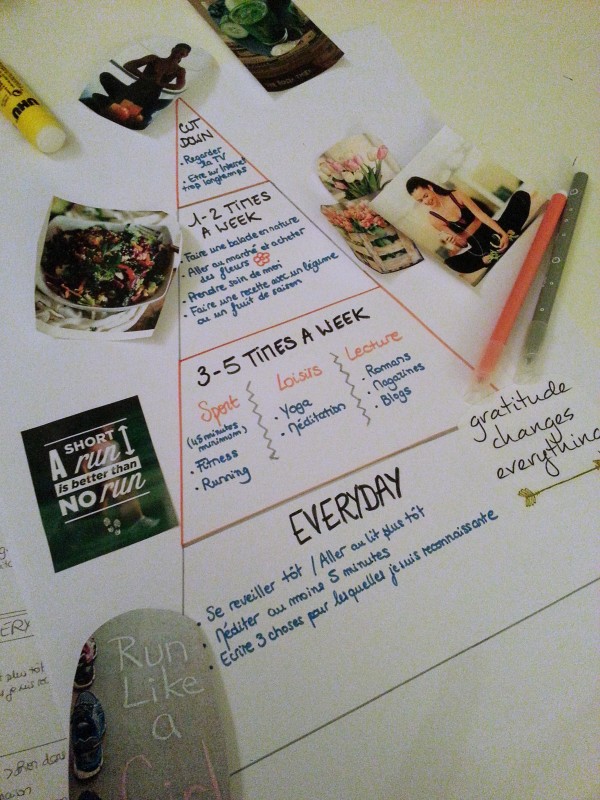 UHU
CUT
DOWN
• Regarder
la TV
• Etre sur Internet
trop longtemps
1-2 TIMES
A WEEK
• Faire une balade en nature
• Aller au marché et acheter
des fleurs
• Prendre soin de moi
• Faire une recette avec un légume
ou un fruit de saison
3-5 TIMES A WEEK
Sport
(45 minutes
minimum)
• Fitness
• Running
Loisirs
• Yoga
• Méditation
Lecture
• Romans
• Magazines
• Blogs
A SHORT
run
is better than
NO run
gratitude
changes
everything
EVERYDAY
• Se reveiller tôt / Aller au lit plus tôt
• Méditer au moins 5 minutes
• Ecrire 3 choses pour lesquelles je suis reconnaissante
Run
Like
a
Girl